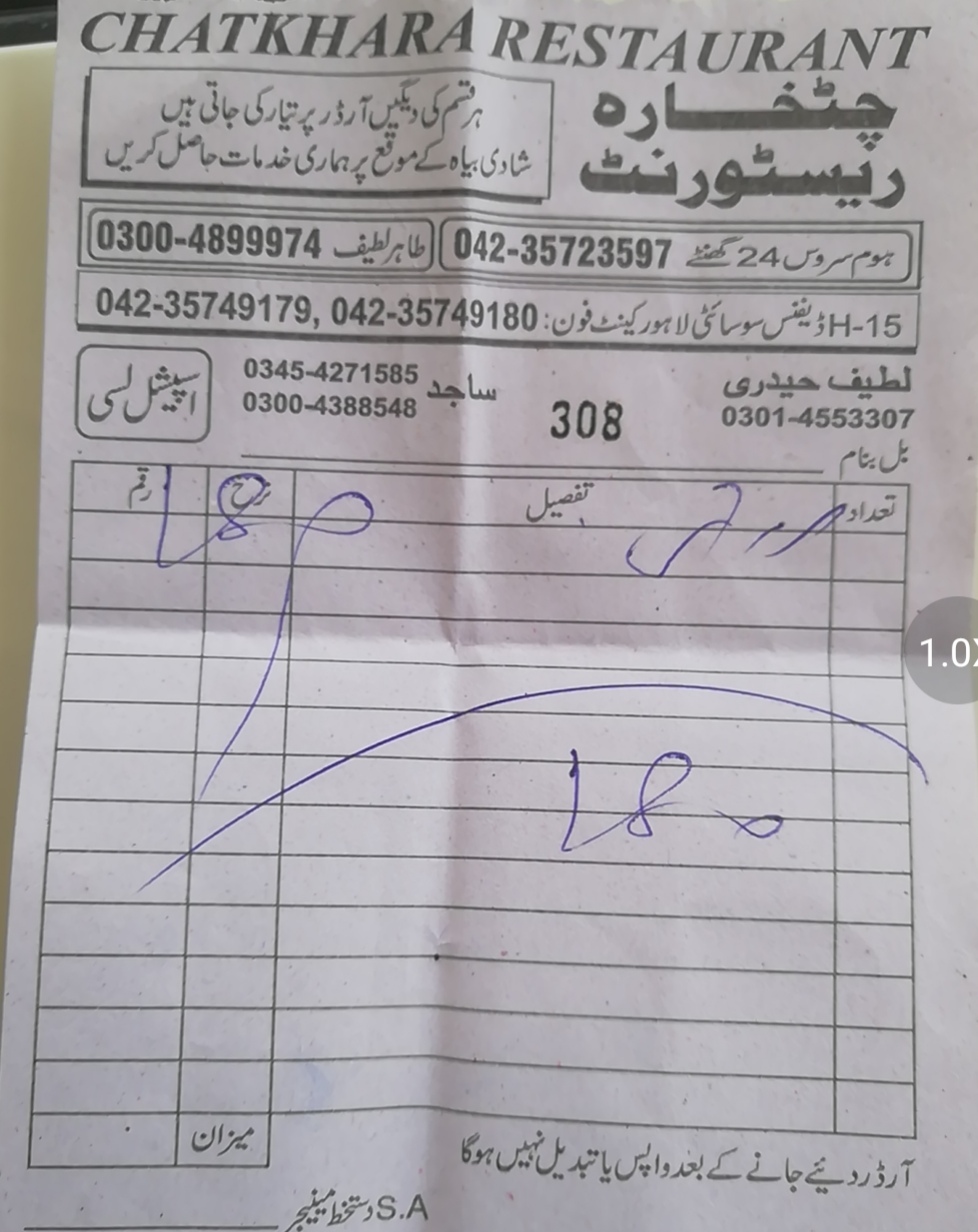 CHATKHARA RESTAURANT
چٹخارہ
ریسٹورنٹ
ہر قسم کی دیگیں آرڈر پر تیار کی جاتی ہیں
شادی بیاہ کے موقع پر ہماری خدمات حاصل کریں
ہوم سروس 24 گھنٹے 042-35723597
طاہر لطیف 0300-4899974
H-15 ڈیفنس سوسائٹی لاہور کینٹ فون: 042-35749180 ,042-35749179
لطیف حیدری
0301-4553307
308
ساجد 0345-4271585
0300-4388548
اسپیشل لسی
بل بنام
تعداد تفصیل نرخ رقم
180
180
میزان
آرڈر دیئے جانے کے بعد واپس یا تبدیل نہیں ہوگا
S.A دستخط مینیجر
1.0X